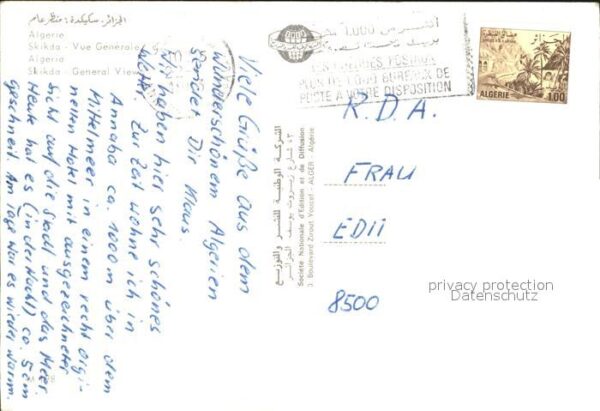 الجزائر. سكيكدة: منظر عام
Algérie
Skikda - Vue Générale
Algeria
Skikda - General View
Viele Grüße aus dem
wunderschönem Algerien
sendet Dir Klaus.
Wir haben hier sehr schönes
Wetter. Zur Zeit wohne ich in
Annaba ca. 1000 m über dem
Mittelmeer in einem recht orgi-
nellen Hotel mit ausgezeichneter
Sicht auf die Stadt und das Meer.
Heute hat es (in der Nacht) ca. 5 cm
geschneit. Am Tage war es wieder warm.
الشركة الوطنية للنشر والتوزيع
Société Nationale d'Edition et de Diffusion
3, Boulevard Zirout Youcef - ALGER - Algérie
PLUS DE 1.000 BUREAUX DE
POSTE A VOTRE DISPOSITION
الجزائر
ALGERIE
1.00
R.D.A.
FRAU
EDII
8500
privacy protection
Datenschutz